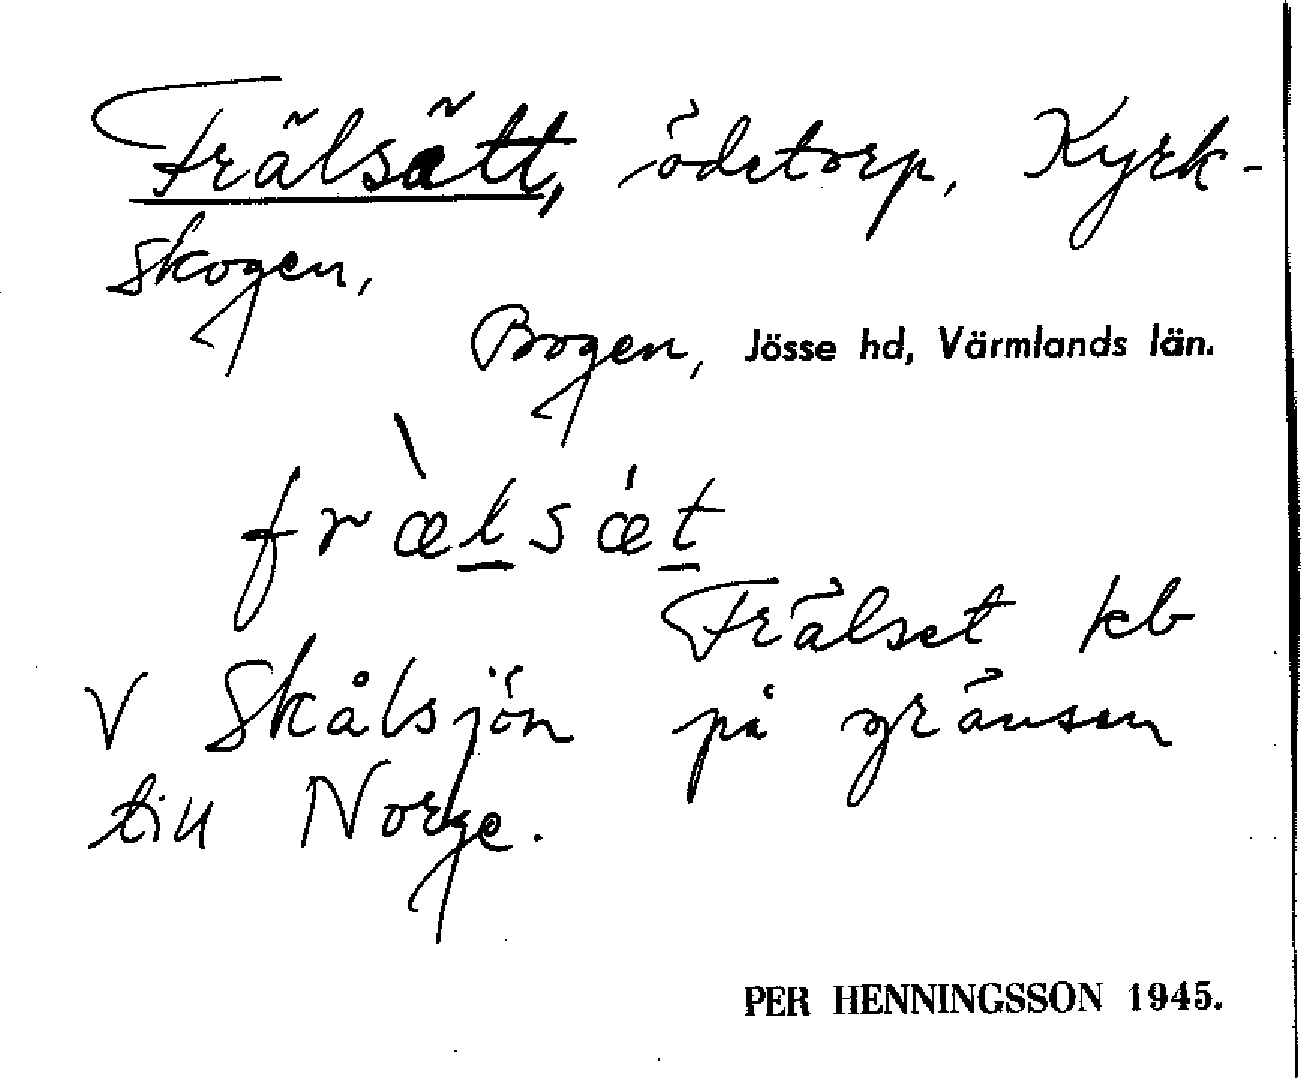 Frälsätt, ödetorp, Kyrk-
skogen,
Bogen, Jösse hd, Värmlands län.
fræ̀lsæ̍t
Frälset kb
V Skålsjön på gränsen
till Norge.
PER HENNINGSSON 1945.